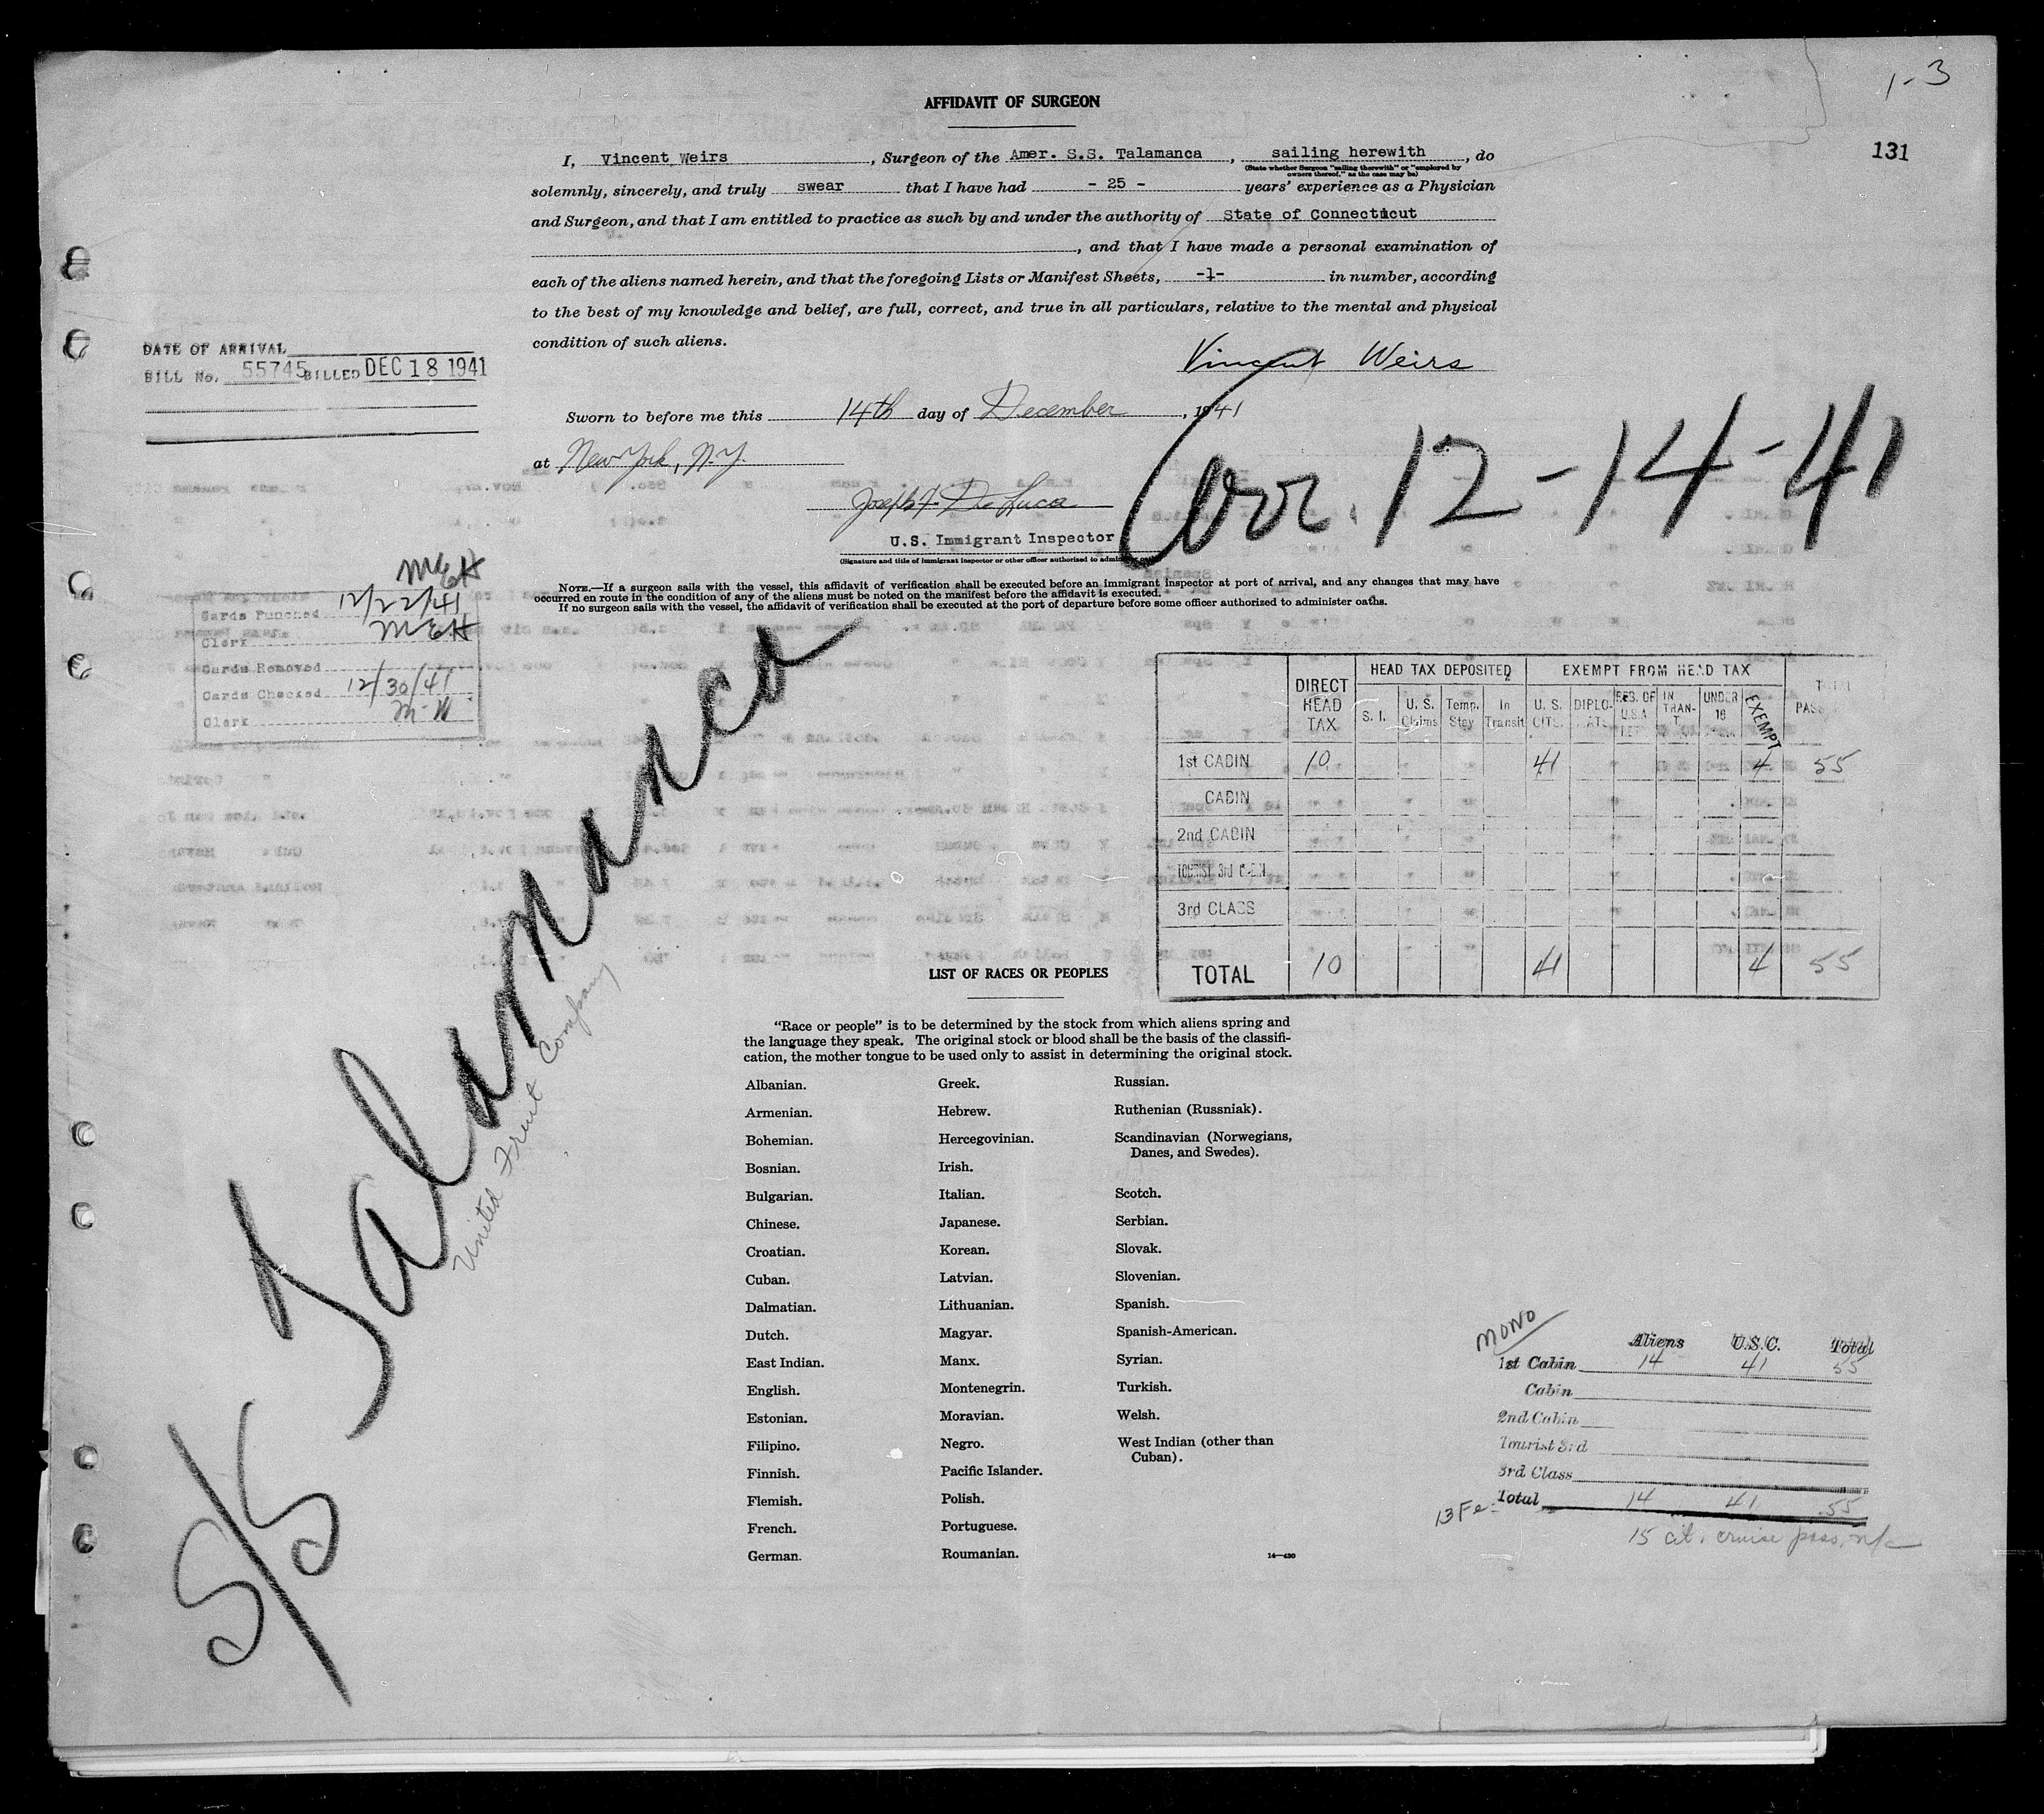 1-3
131
AFFIDAVIT OF SURGEON
I, Vincent Weirs, Surgeon of the Amer. S.S. Talamanca, sailing herewith, do
(State whether Surgeon "sailing therewith" or "employed by
owners thereof," as the case may be)
solemnly, sincerely, and truly swear that I have had - 25 - years' experience as a Physician
and Surgeon, and that I am entitled to practice as such by and under the authority of State of Connecticut
, and that I have made a personal examination of
each of the aliens named herein, and that the foregoing Lists or Manifest Sheets, -1- in number, according
to the best of my knowledge and belief, are full, correct, and true in all particulars, relative to the mental and physical
condition of such aliens.
Vincent Weirs
DATE OF ARRIVAL
BILL No. 55745 BILLED DEC 18 1941
Sworn to before me this 14th day of December, 1941
at New York, N.Y.
Joseph F. De Luca
U.S. Immigrant Inspector
(Signature and title of immigrant inspector or other officer authorized to administer
12-14-41
NOTE.—If a surgeon sails with the vessel, this affidavit of verification shall be executed before an immigrant inspector at port of arrival, and any changes that may have
occurred en route in the condition of any of the aliens must be noted on the manifest before the affidavit is executed.
If no surgeon sails with the vessel, the affidavit of verification shall be executed at the port of departure before some officer authorized to administer oaths.
MEH
Cards Punched 12/22/41
Clerk MEH
Cards Removed
Cards Checked 12/30/41
Clerk M-W
S/S Talamanca
United Fruit Company
DIRECT HEAD TAX HEAD TAX DEPOSITED EXEMPT FROM HEAD TAX TOTAL PASS
S. I. U. S. Claims Temp. Stay In Transit U. S. CITS. DIPLO-MATS RES. OF U.S.A. RET IN TRAN-T UNDER 16 EXEMPT
1st CABIN 10 41 4 55
CABIN
2nd CABIN
TOURIST 3rd CABIN
3rd CLASS
TOTAL 10 41 4 55
LIST OF RACES OR PEOPLES
"Race or people" is to be determined by the stock from which aliens spring and
the language they speak. The original stock or blood shall be the basis of the classifi-
cation, the mother tongue to be used only to assist in determining the original stock.
Albanian.
Armenian.
Bohemian.
Bosnian.
Bulgarian.
Chinese.
Croatian.
Cuban.
Dalmatian.
Dutch.
East Indian.
English.
Estonian.
Filipino.
Finnish.
Flemish.
French.
German.
Greek.
Hebrew.
Hercegovinian.
Irish.
Italian.
Japanese.
Korean.
Latvian.
Lithuanian.
Magyar.
Manx.
Montenegrin.
Moravian.
Negro.
Pacific Islander.
Polish.
Portuguese.
Roumanian.
Russian.
Ruthenian (Russniak).
Scandinavian (Norwegians,
Danes, and Swedes).
Scotch.
Serbian.
Slovak.
Slovenian.
Spanish.
Spanish-American.
Syrian.
Turkish.
Welsh.
West Indian (other than
Cuban).
14—430
MONO
Aliens U.S.C. Total
1st Cabin 14 41 55
Cabin
2nd Cabin
Tourist 3rd
3rd Class
13 Fe. Total 14 41 55
15 cit. cruise pass. n/c